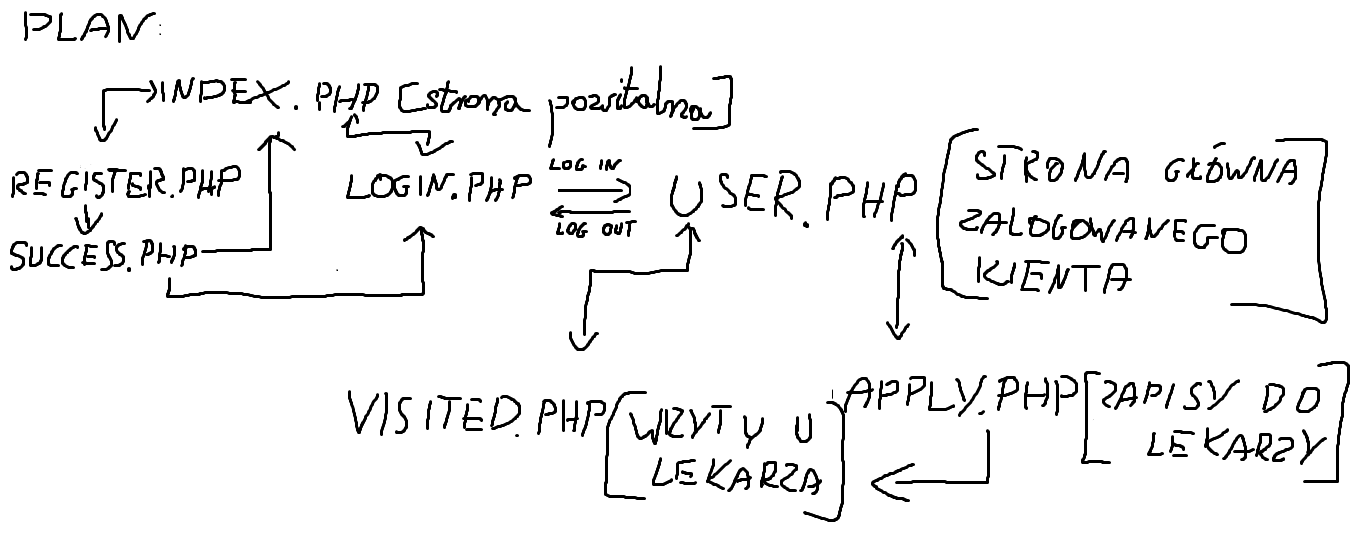 PLAN:
INDEX.PHP [strona powitalna]
REGISTER.PHP
SUCCESS.PHP
LOGIN.PHP
LOG IN
LOG OUT
USER.PHP
[STRONA GŁÓWNA
ZALOGOWANEGO
KIENTA]
VISITED.PHP [WIZYTY U
LEKARZA]
APPLY.PHP [ZAPISY DO
LEKARZY]